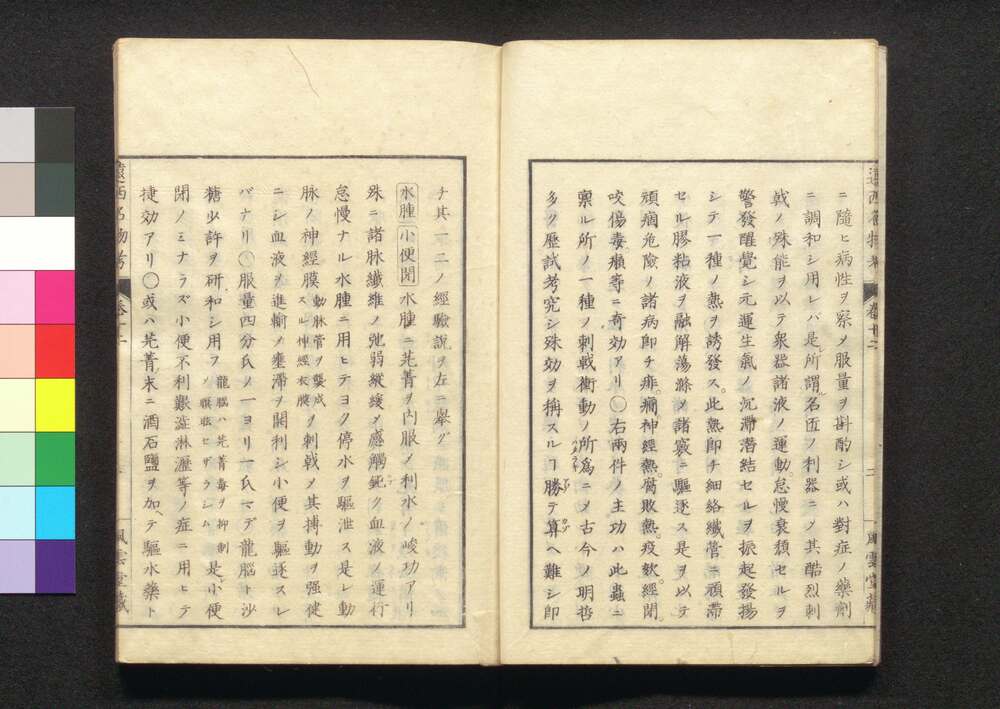 ニ隨ヒ病性ヲ察メ服量ヲ斟酌シ或ハ對症ノ藥劑
ニ調和シ用レバ是所謂名匠ノ利器ニメ其酷烈刺
戟ノ殊能ヲ以テ衆器諸液ノ運動怠慢衰頽セルヲ
警發醒覺シ元運生氣ノ沉滯潛結セルヲ振起發揚
シテ一種ノ熱ヲ誘發ス。此熱即チ細絡纖管ニ頑滯
セル膠粘液ヲ融解蕩滌メ諸竅ニ驅逐ス是ヲ以テ
頑痼危險ノ諸病即チ痱。癇神經熱。腐敗熱。疫欬。經閉。
咬傷毒癩等ニ奇効アリ○右兩件ノ主功ハ此蟲ニ
稟ル所ノ一種ノ刺戟衝動ノ所爲ニメ古今ノ明哲
多ク歷試考究シ殊効ヲ稱スルヿ勝テ算ヘ難シ即
遠西名物考 卷十二 二 風雲堂藏
チ其一二ノ經驗說ヲ左ニ擧グ
水腫 小便閉 水腫ニ芫菁ヲ內服メ利水ノ峻功アリ
殊ニ諸脉纖維ノ弛弱緩縱メ感觸鈍ク血液ノ運行
怠慢ナル水腫ニ用ヒテヨク停水ヲ驅泄ス是レ動
脉ノ神經膜動脉管ヲ襲成スル神經衣膜ヲ刺戟メ其搏動ヲ强健
ニシ血液ヲ進輸メ壅滯ヲ開利シ小便ヲ驅逐スレ
バナリ○服量四分氏ノ一ヨリ一氏マデ龍脳ト沙
糖少許ヲ研和シ用フ龍脳ハ芫菁毒ヲ抑制メ是小便
閉ノミナラズ小便不利艱澁淋瀝等ノ症ニ用ヒテ
捷効アリ○或ハ芫菁末ニ酒石鹽ヲ加ヘテ驅水藥ト
遠西名物考 卷十二 風雲堂藏